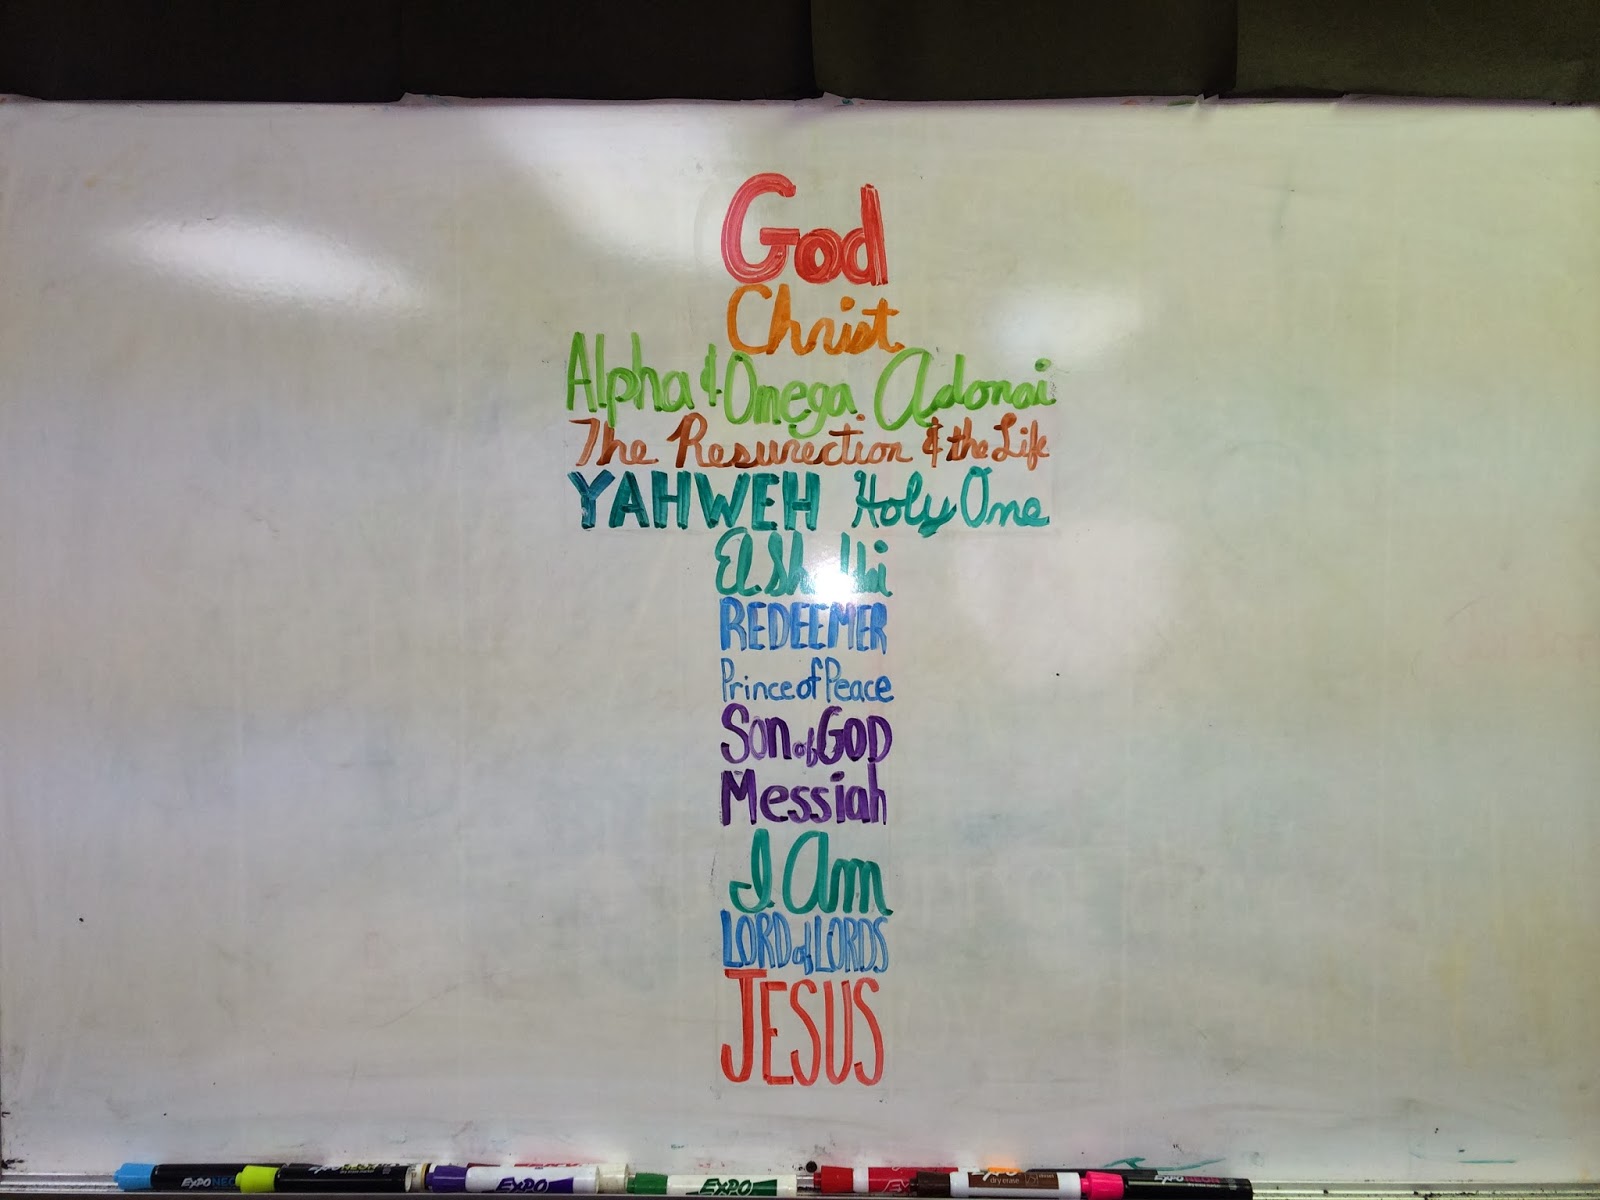 God
Christ
Alpha & Omega Adonai
The Resurection & the Life
YAHWEH Holy One
El
REDEEMER
Prince of Peace
Son of GOD
Messiah
I Am
LORD of LORDS
JESUS
EXPO NEO EXPO EXPO EXPO dry erase